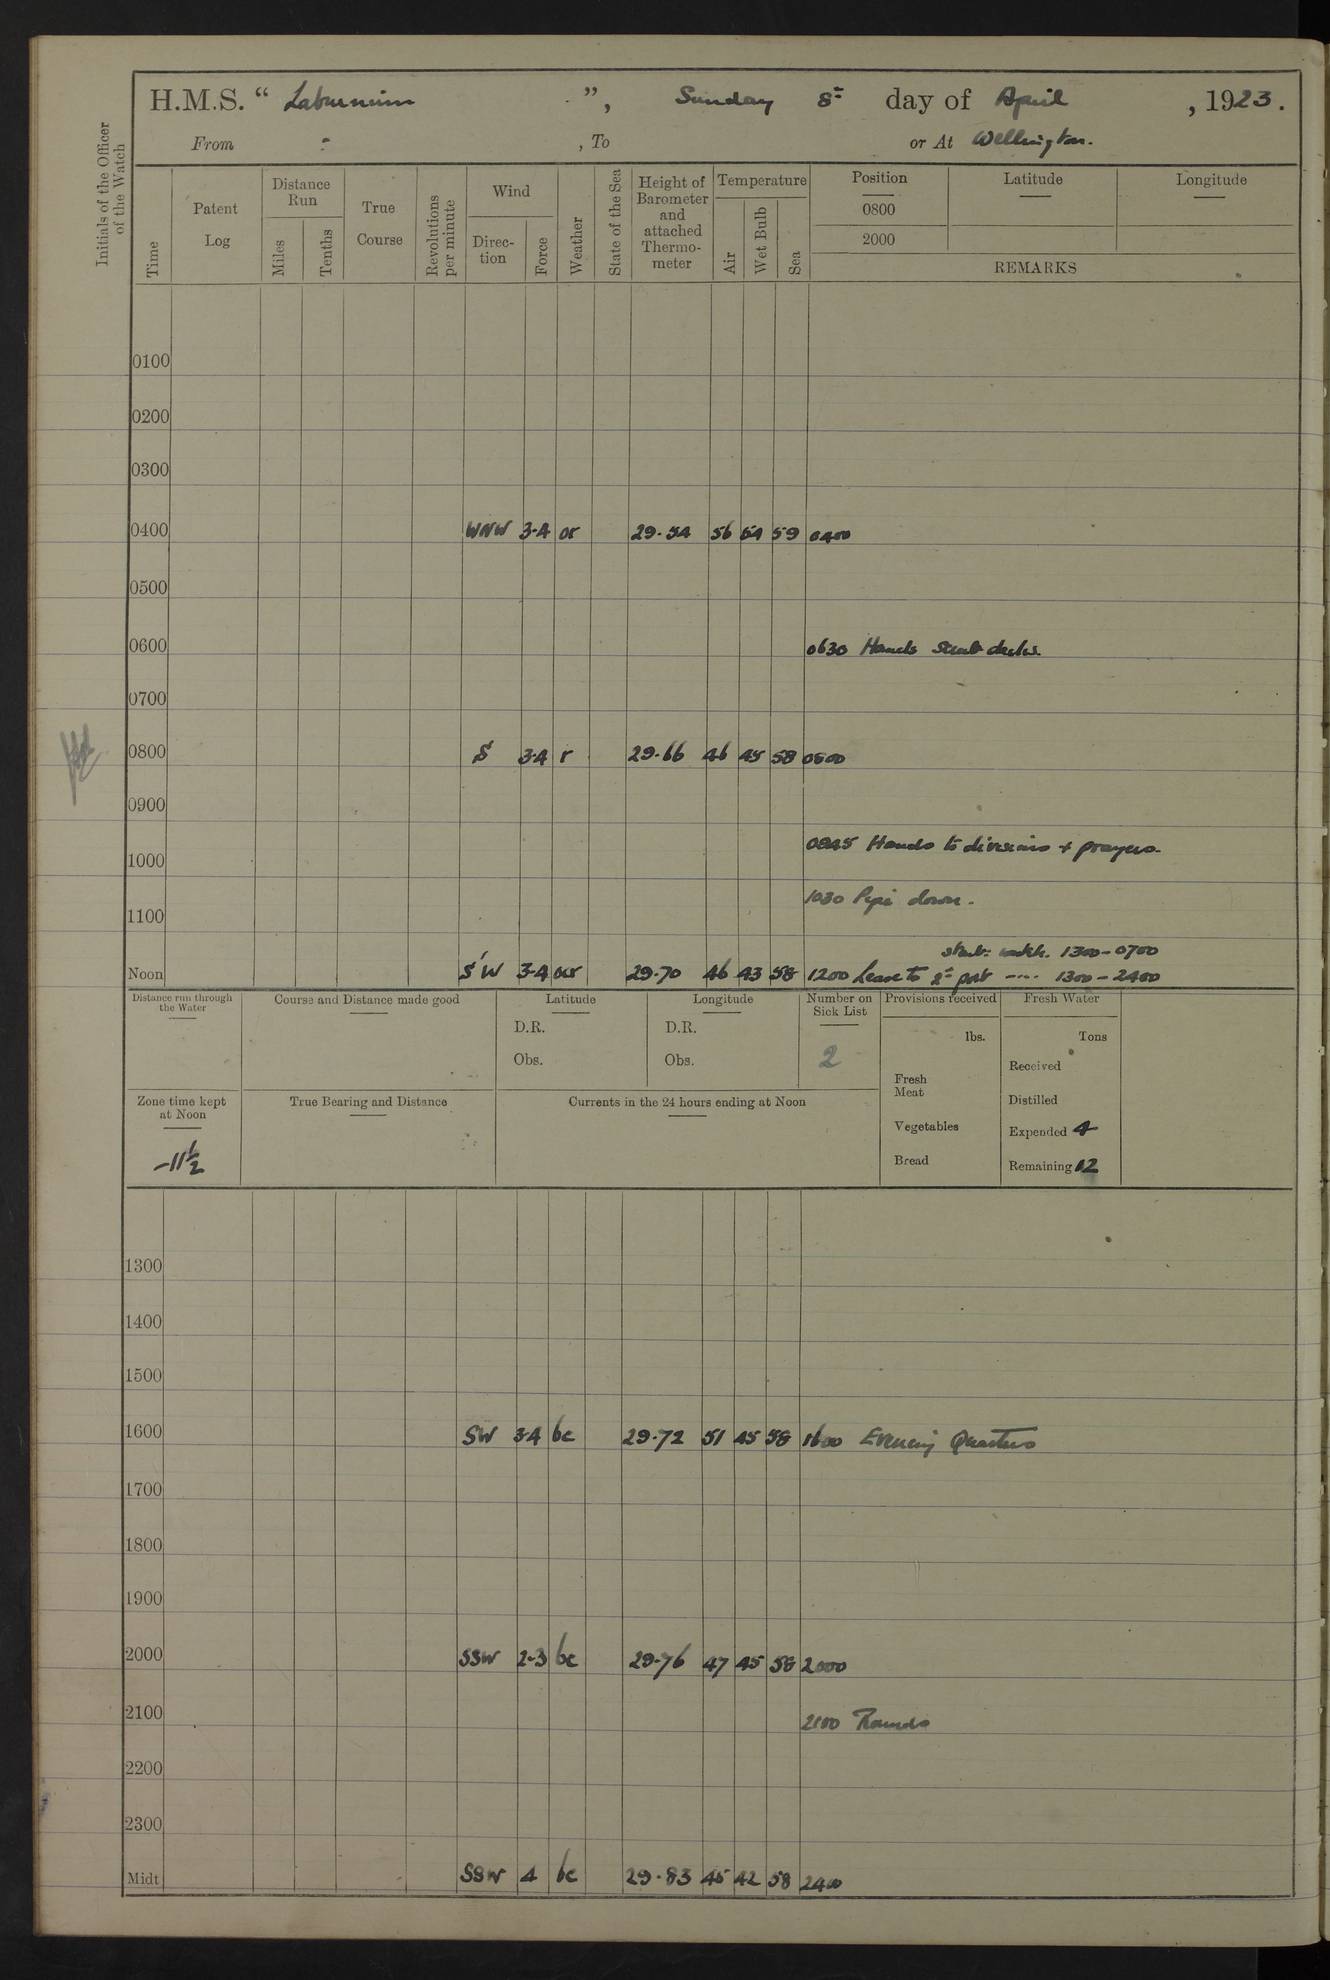 H.M.S. “ Laburnum ”, Sunday 8th day of April , 1923.
From - , To or At Wellington.
Initials of the Officer of the Watch
Time
Patent Log
Distance Run
Miles
Tenths
True Course
Revolutions per minute
Wind
Direc-tion
Force
Weather
State of the Sea
Height of Barometer and attached Thermo-meter
Temperature
Air
Wet Bulb
Sea
Position
0800
2000
Latitude
Longitude
REMARKS
0100
0200
0300
0400 WNW 3-4 or 29.54 56 54 59 0400
0500
0600 0630 Hands scrub decks.
0700
0800 S 3-4 r 29.66 46 45 58 0800
0900
0945 Hands to divisions + prayers.
1000
1030 Pipe down.
1100
watch. 1300-0700
Noon S'W 3-4 ocr 29.70 46 43 58 1200 Leave to 2nd part ---- 1300-2400
Distance run through the Water
Course and Distance made good
Latitude
D.R.
Obs.
Longitude
D.R.
Obs.
Number on Sick List
2
Provisions received
lbs.
Fresh Meat
Vegetables
Bread
Fresh Water
Tons
Received
Distilled
Expended 4
Remaining 12
Zone time kept at Noon
-11½
True Bearing and Distance
Currents in the 24 hours ending at Noon
1300
1400
1500
1600 SW 3-4 bc 29.72 51 45 58 1600 Evening Quarters
1700
1800
1900
2000 SSW 2-3 bc 29.76 47 45 58 2000
2100 2100 Rounds
2200
2300
Midt SSW 4 bc 29.83 45 42 58 2400